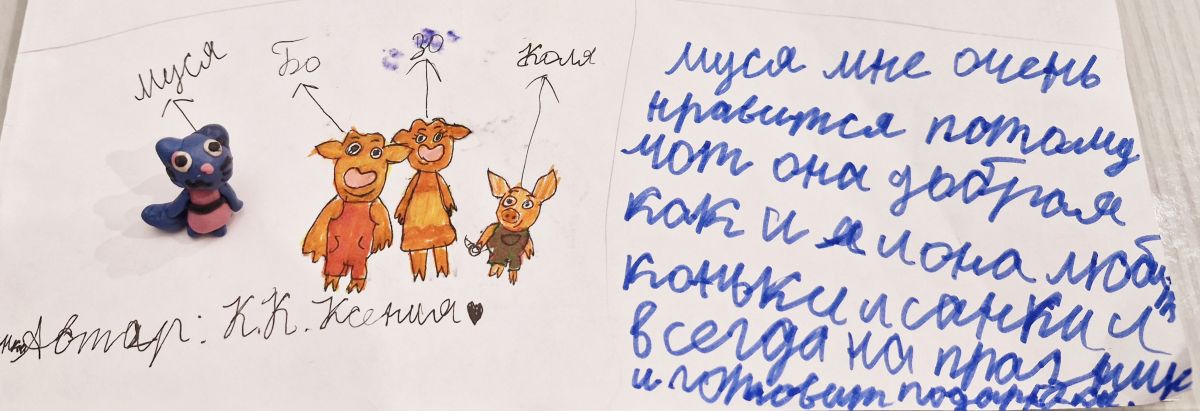 Муся
Бо
Зо
Коля
Автар: К.К. Ксения
муся мне очень
нравится потому
мот она добрая
как и я и она люби
коньки и санки и
всегда на празник
и готовит подарки.